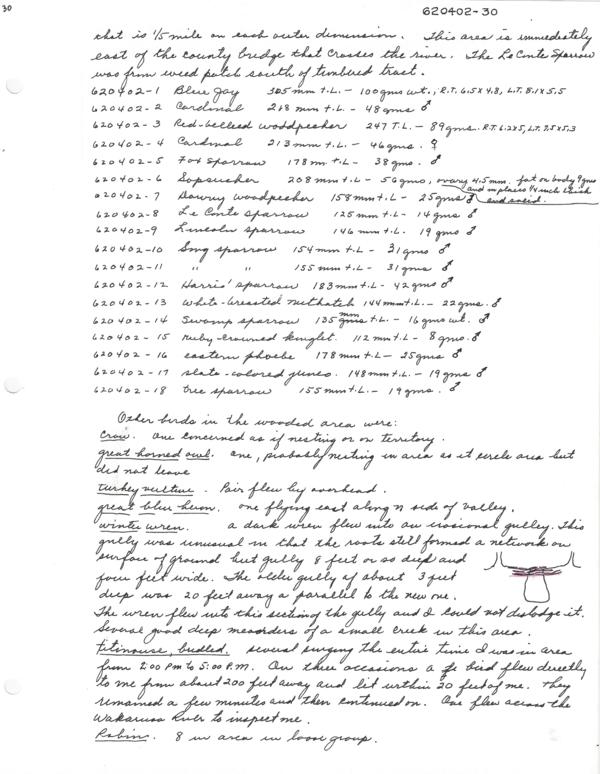 30
620402-30
that is 1/5 mile on each outer dimension. This area is immediately
east of the county bridge that crosses the river. The Le Conte Sparrow
was from weed patch south of timbered tract.
620402-1 Blue Jay 305 mm t.L. - 100 gms wt., R.T. 6.5 x 4.8, L.T. 5.1 x 5.5
620402-2 Cardinal 218 mm t.L. - 48 gms ♂
620402-3 Red-bellied woodpecker 247 T.L. - 89 gms. R.T. 6.2 x 5, L.T. 7.5 x 5.3
620402-4 Cardinal 213 mm t.L. - 46 gms. ♀
620402-5 Fox Sparrow 178 mm t.L - 38 gms. ♂
620402-6 Sapsucker 208 mm t.L. - 56 gms, ovary 4.5 mm. fat on body 9 gms
and in places 1/4 inch thick
and solid.
620402-7 Downy woodpecker 158 mm t.L - 25 gms ♂
620402-8 Le Conte sparrow 125 mm t.L. - 14 gms ♂
620402-9 Lincoln sparrow 146 mm t.L. 19 gms ♂
620402-10 Song sparrow 154 mm t.L - 21 gms ♂
620402-11 " " 155 mm t.L. - 31 gms ♂
620402-12 Harris' sparrow 183 mm t.L - 42 gms ♂
620402-13 White-breasted nuthatch 144 mm t.L. - 22 gms. ♂
620402-14 Swamp sparrow 135 mm t.L. - 16 gms wt. ♂
620402-15 ruby-crowned kinglet. 112 mm t.L - 8 gms. ♂
620402-16 eastern phoebe 178 mm t.L - 25 gms ♂
620402-17 slate-colored junco. 148 mm t.L. - 19 gms ♂
620402-18 tree sparrow 155 mm t.L. - 19 gms. ♂
Other birds in the wooded area were:
Crow. One concerned as if nesting or on territory.
great horned owl. One, probably nesting in area as it circle area but
did not leave
turkey vulture. Pair flew by overhead.
great blue heron. one flying east along n side of valley.
winter wren. a dark wren flew into an erosional gulley. This
gully was unusual in that the roots still formed a network on
surface of ground but gully 8 feet or so deep and
four feet wide. The older gully of about 3 feet
deep was 20 feet away & parallel to the new one.
The wren flew into this section of the gully and I could not dislodge it.
Several good deep meanders of a small creek in this area.
titmouse, tufted. several singing the entire time I was in area
from 2:00 PM to 5:00 P.M. On three occasions a bird flew directly
to me from about 200 feet away and lit within 20 feet of me. They
remained a few minutes and then continued on. One flew across the
Wakarusa River to inspect me.
Robin. 8 in area in loose group.